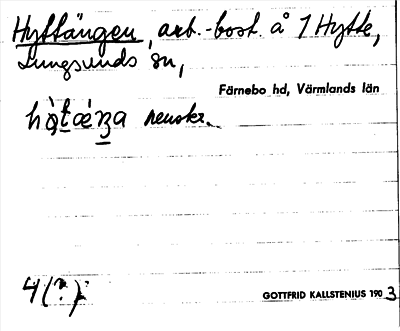 Hyttängen, arb.-bost. å 1 Hytte,
Lungsunds sn,
Färnebo hd, Värmlands län
neutr.
4(?);
GOTTFRID KALLSTENIUS 1903